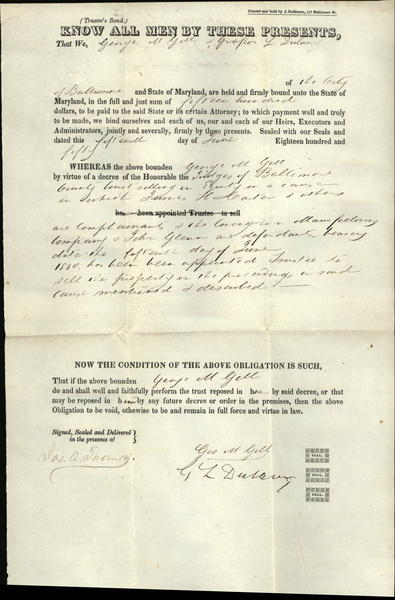 Printed and sold by J. Robinson, 117 Baltimore St.
(Trustee's Bond.)
KNOW ALL MEN BY THESE PRESENTS,
That We, George M Gill & Grafton L Dulany
of the City
of Baltimore and State of Maryland, are held and firmly bound unto the State of
Maryland, in the full and just sum of fifteen hundred
dollars, to be paid to the said State or its certain Attorney; to which payment well and truly
to be made, we bind ourselves and each of us, our and each of our Heirs, Executors and
Administrators, jointly and severally, firmly by these presents. Sealed with our Seals and
dated this fifteenth day of June Eighteen hundred and
fifty
WHEREAS the above bounden George M. Gill
by virtue of a decree of the Honorable the Judges of Baltimore
County Court sitting in Equity in a cause
in which James H. Carter & others
has been appointed Trustee to sell
are complainants & the Manufacturing
Company & John Glenn are defendants, bearing
date the fifteenth day of June
1850, has been appointed Trustee to
sell the property in the proceedings in said
cause mentioned & described
NOW THE CONDITION OF THE ABOVE OBLIGATION IS SUCH,
That if the above bounden George M Gill
do and shall well and faithfully perform the trust reposed in him by said decree, or that
may be reposed in him by any future decree or order in the premises, then the above
Obligation to be void, othewise to be and remain in full force and virtue in law.
Signed, Sealed and Delivered
in the presence of
Jos. A. Thomas
Geo M Gill
SEAL.
G L Dulany
SEAL.
SEAL.